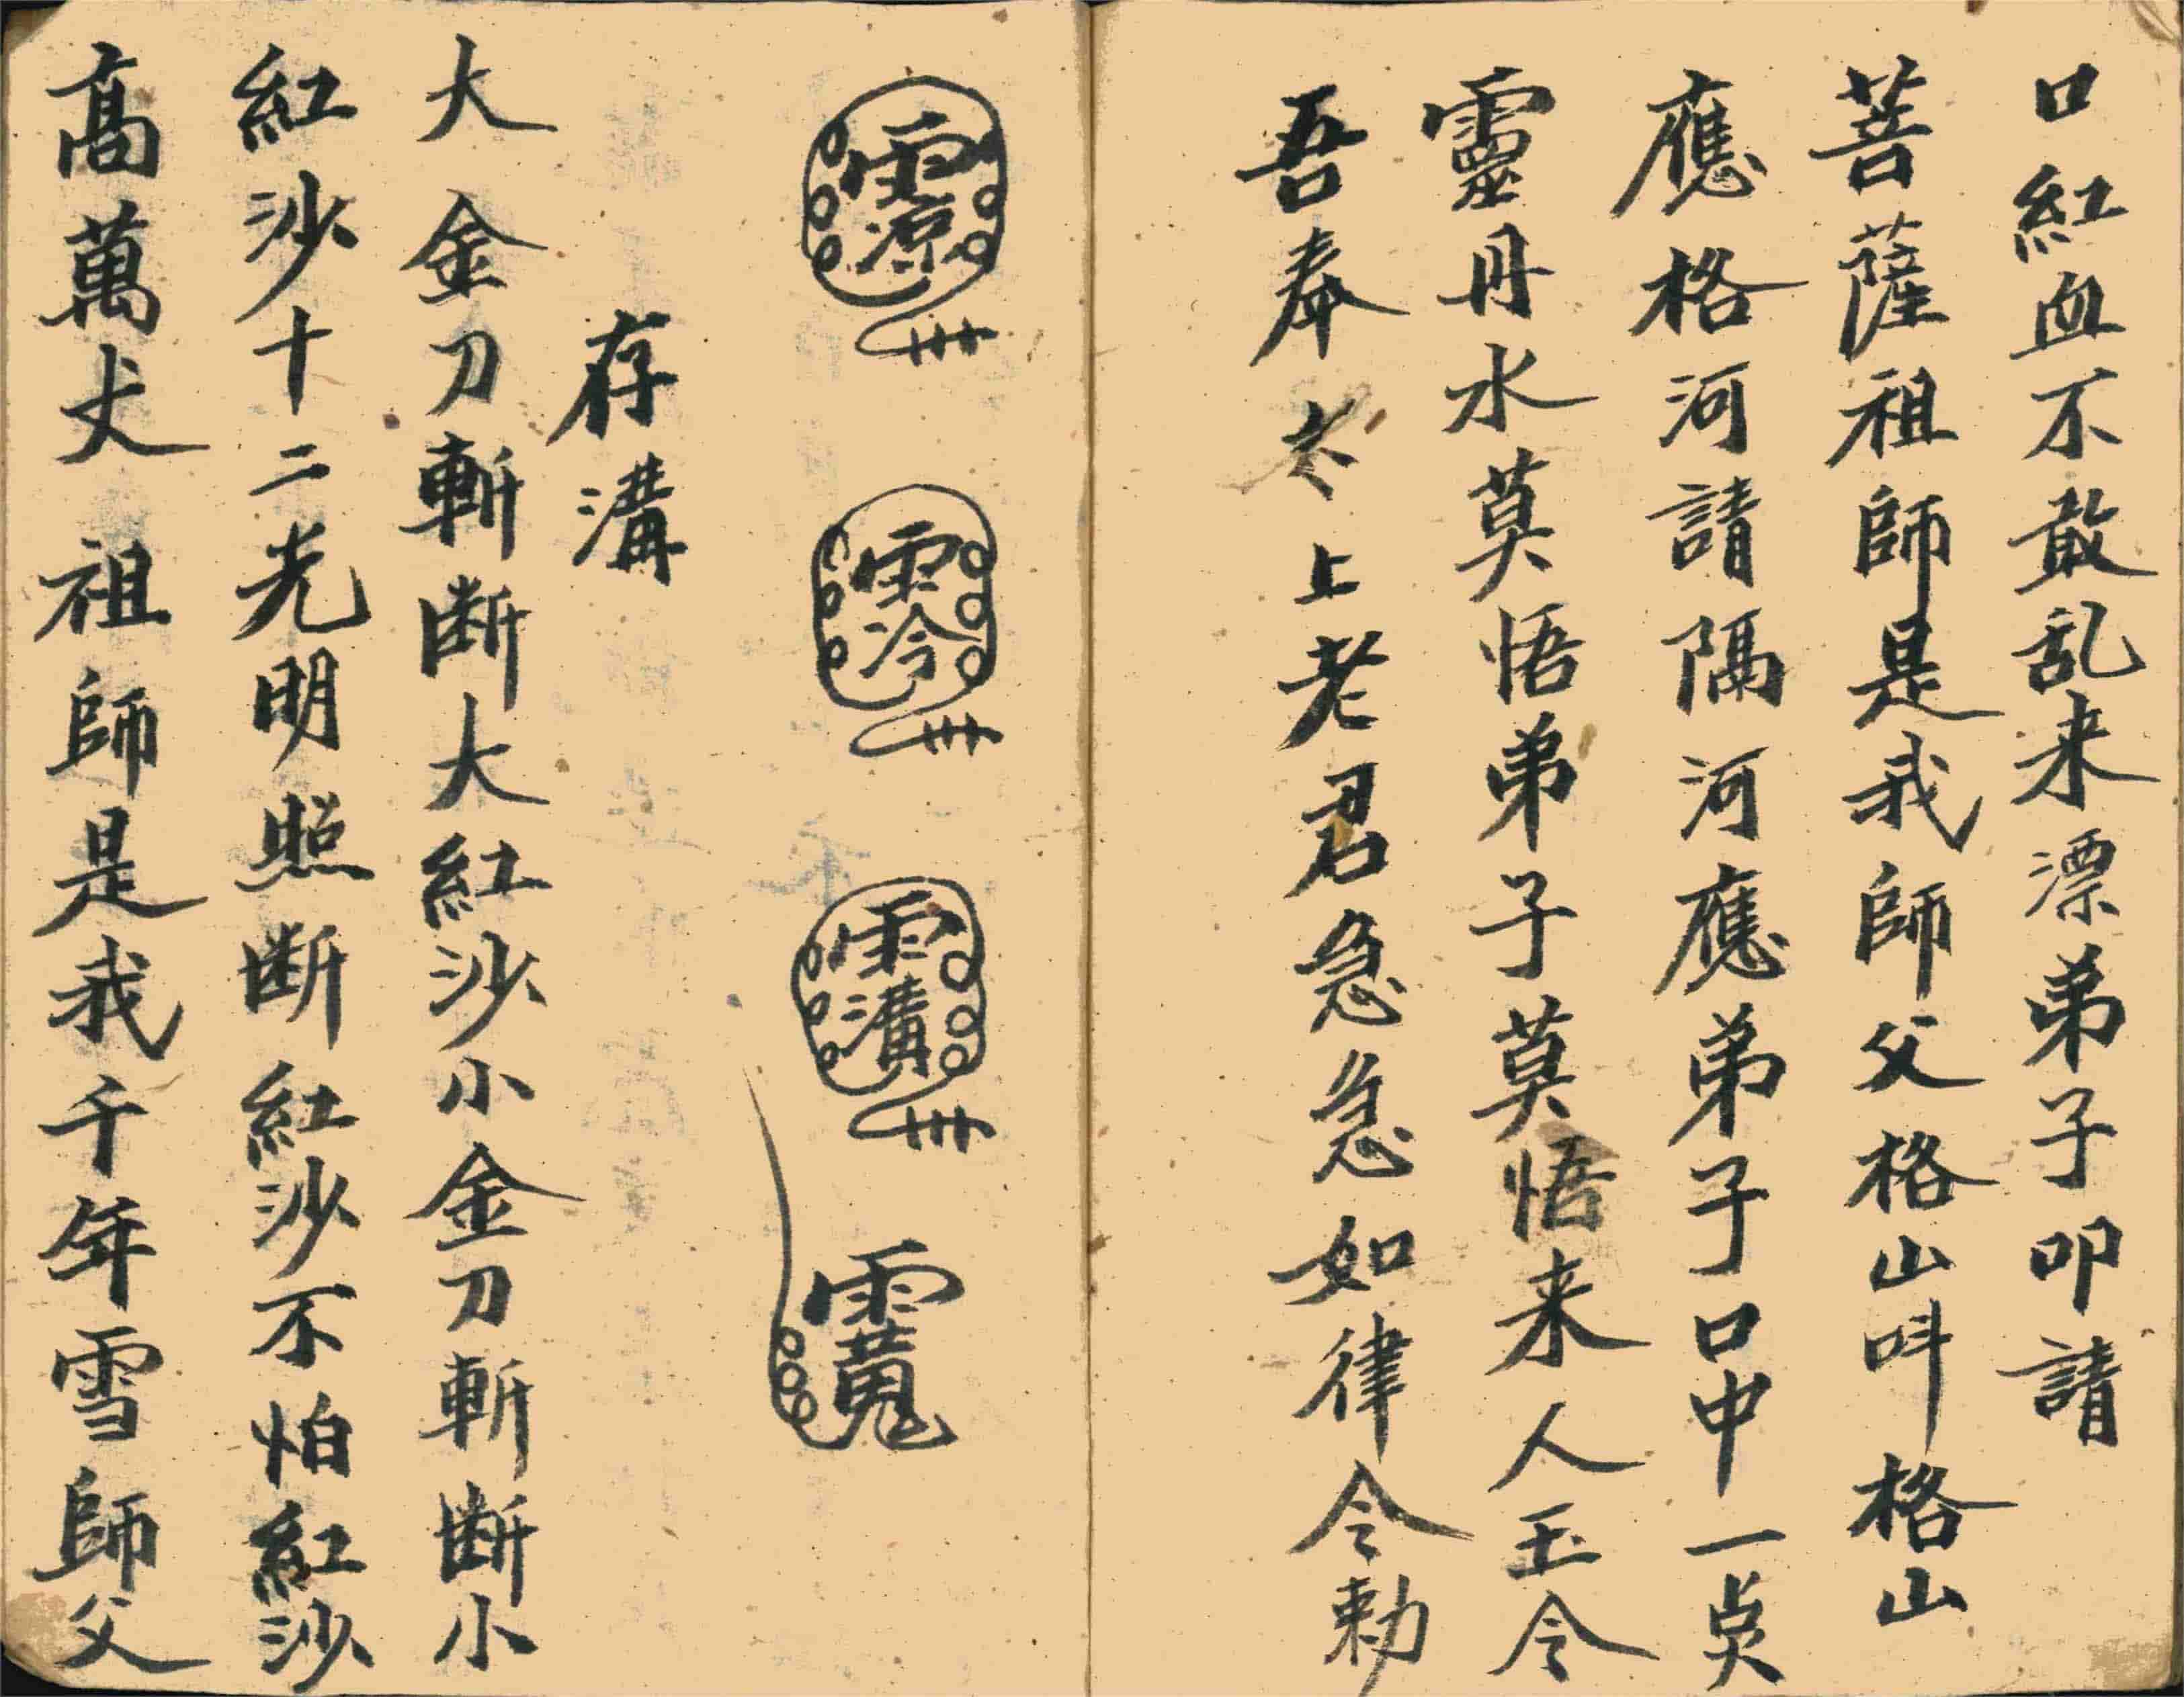 口紅血不敢乱来漂弟子叩請
菩薩祖師是我師父格山呌格山
應格河請隔河應弟子口中一点
靈丹水莫悟弟子莫悟来人玉令
吾奉太上老君急急如律令勅
存溝
大金刀斬断大紅沙小金刀斬断小
紅沙十二光明照断紅沙不怕紅沙
高萬丈祖師是我千年雪師父